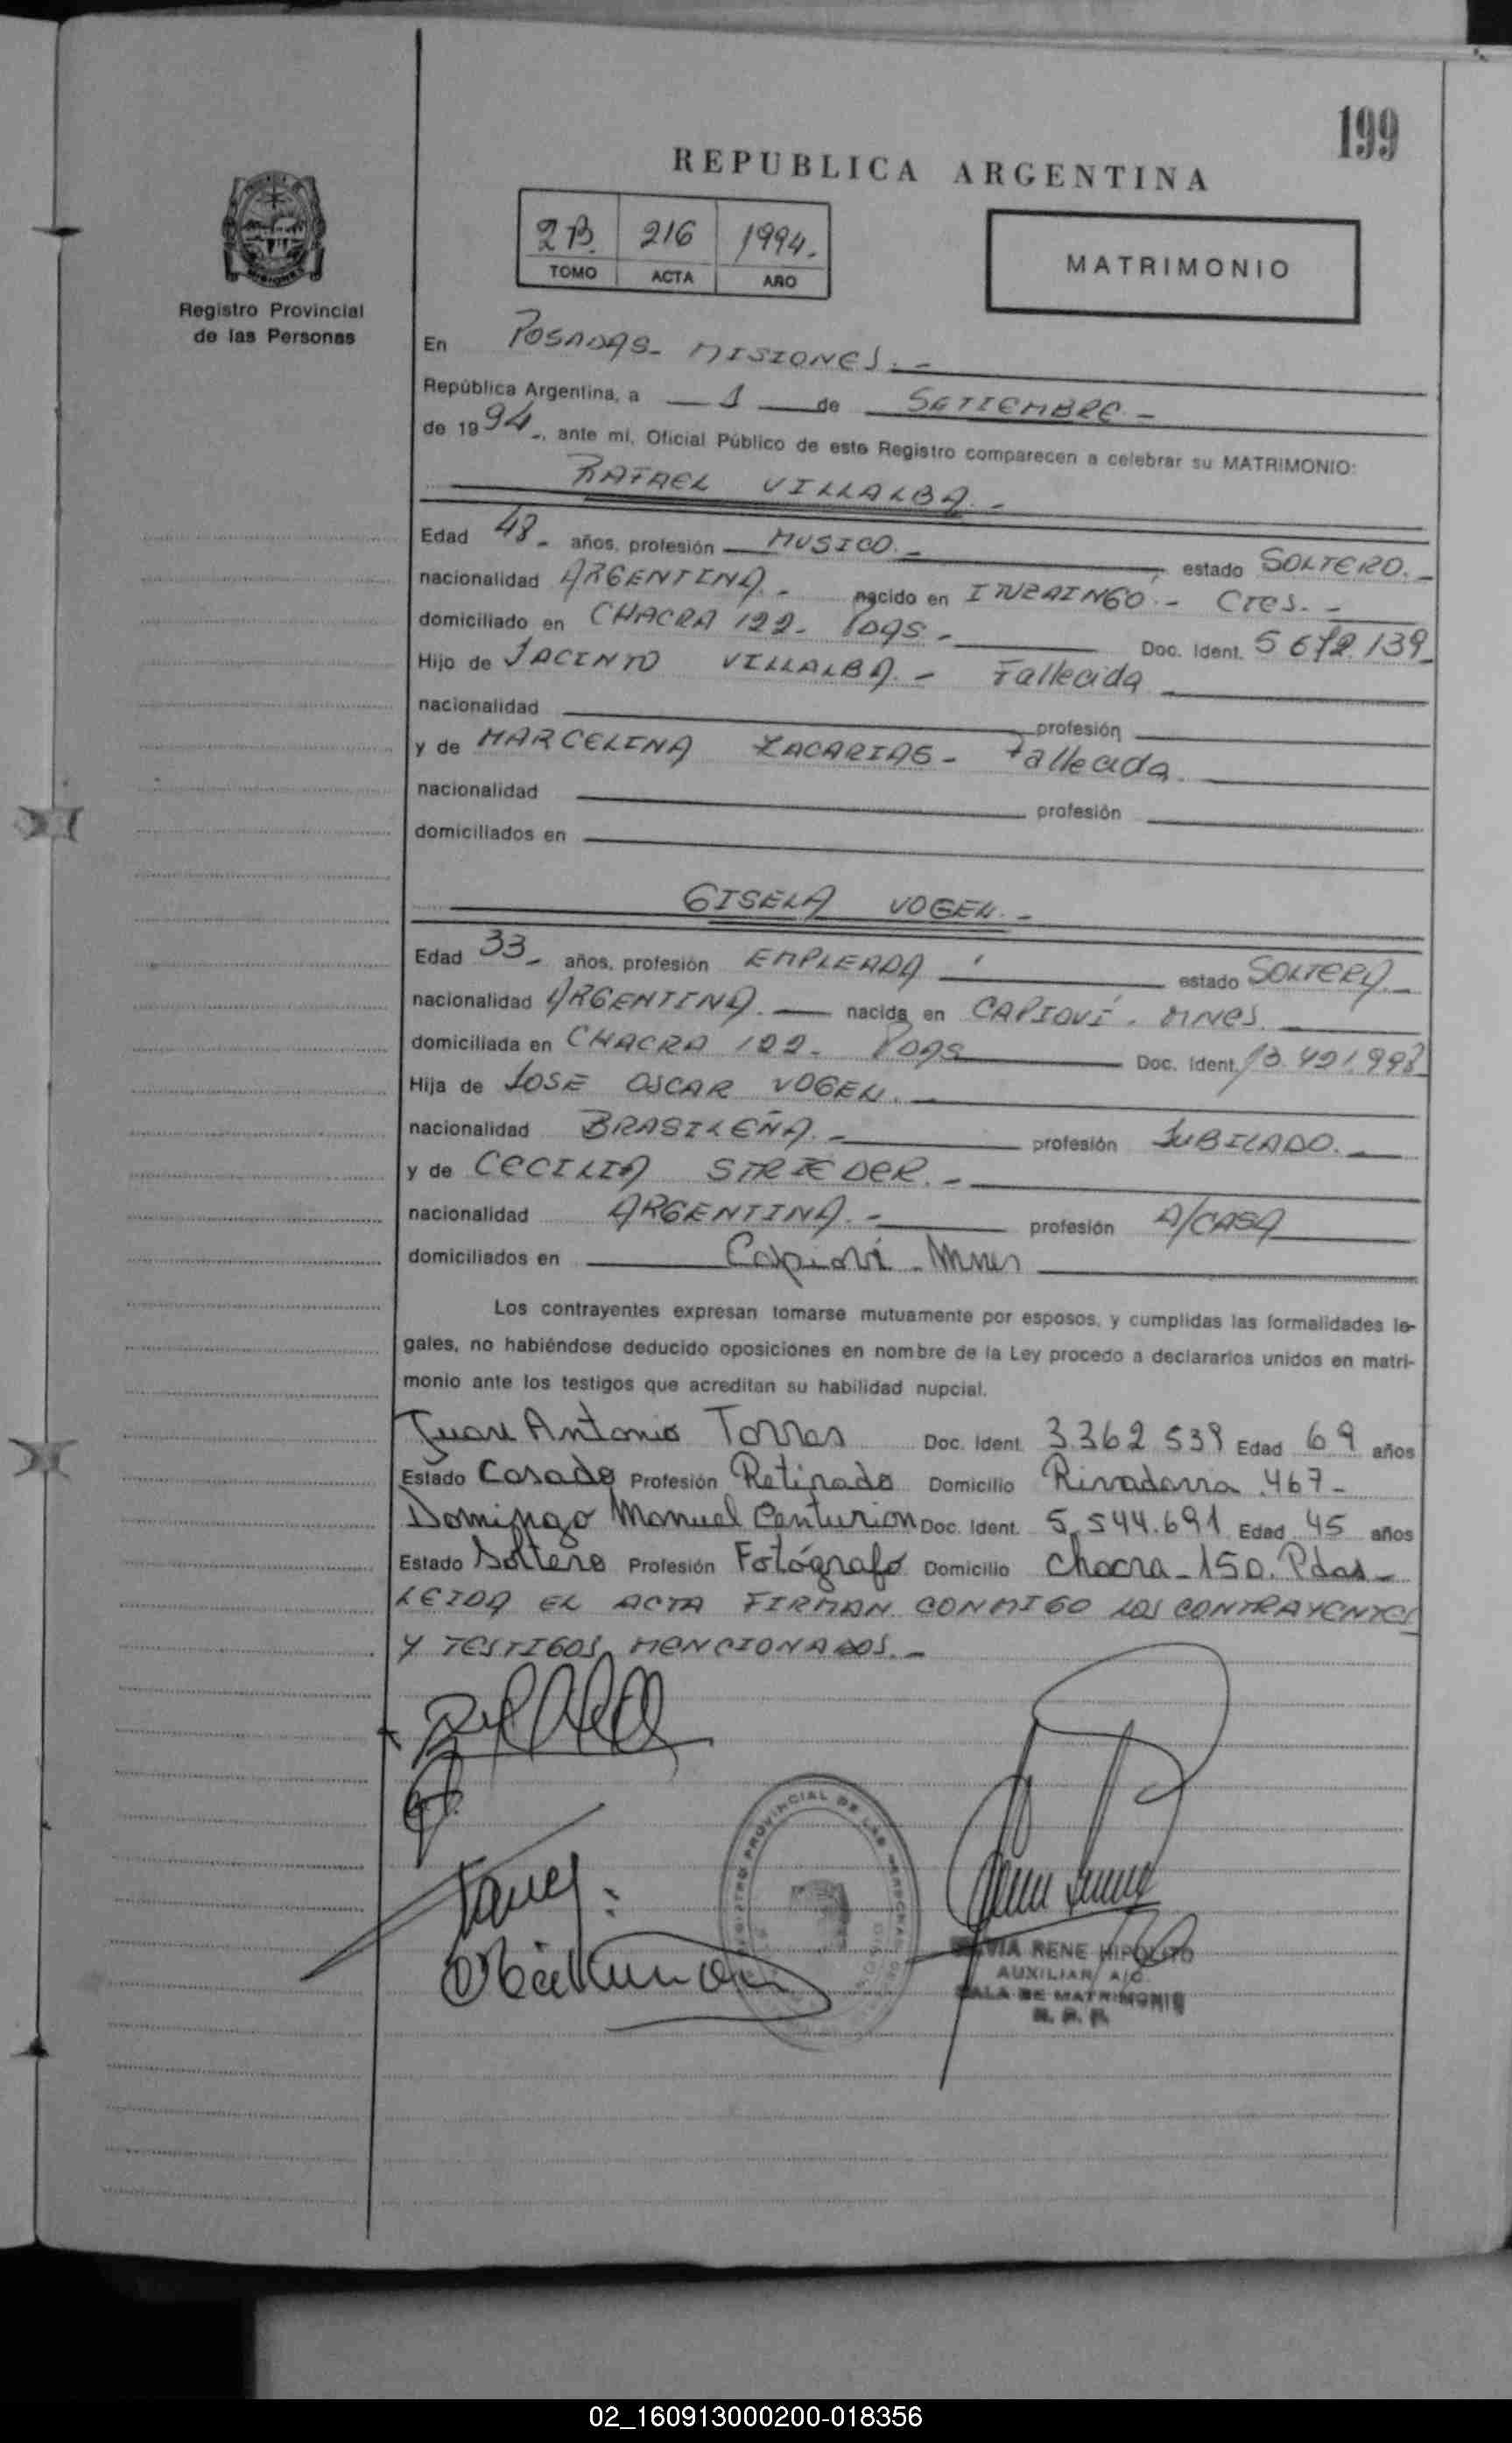 199
REPUBLICA ARGENTINA
2B. 216 1994.
TOMO ACTA AÑO
MATRIMONIO
Registro Provincial
de las Personas
En POSADAS- MISIONES.-
República Argentina, a 1 de SETIEMBRE-
de 1994-, ante mi, Oficial Público de este Registro comparecen a celebrar su MATRIMONIO:
RAFAEL VILLALBA.-
Edad 48- años, profesión MUSICO.- estado SOLTERO.-
nacionalidad ARGENTINA.- nacido en ITUZAINGÓ.- Ctes.-
domiciliado en CHACRA 122- Pdas.- Doc. Ident. 5 672.139-
Hijo de JACINTO VILLALBA.- Fallecida
nacionalidad profesión
y de MARCELINA ZACARIAS- Fallecida.
nacionalidad profesión
domiciliados en
GISELA VOGEL.-
Edad 33- años, profesión EMPLEADA estado SOLTERA.-
nacionalidad ARGENTINA.- nacida en CAPIOVÍ. MNES.
domiciliada en CHACRA 122- Pdas Doc. Ident. 13.421.998
Hija de JOSE OSCAR VOGEL.-
nacionalidad BRASILEÑA.- profesión JUBILADO.-
y de CECILIA STRIEDER.-
nacionalidad ARGENTINA.- profesión A/CASA
domiciliados en Capioví - Mnes
Los contrayentes expresan tomarse mutuamente por esposos, y cumplidas las formalidades le-
gales, no habiéndose deducido oposiciones en nombre de la Ley procedo a declararlos unidos en matri-
monio ante los testigos que acreditan su habilidad nupcial.
Juan Antonio Torres Doc. Ident. 3.362 539 Edad 69 años
Estado Casado Profesión Retirado Domicilio Rivadavia 467-
Domingo Manuel Centurion Doc. Ident. 5.544.691 Edad 45 años
Estado Soltero Profesión Fotógrafo Domicilio Chacra-150. Pdas-
LEIDA EL ACTA FIRMAN CONMIGO LOS CONTRAYENTES
Y TESTIGOS MENCIONADOS.-
REGISTRO PROVINCIAL DE LAS PERSONAS
RENE HIPOLITO
AUXILIAR A/C.
SALA DE MATRIMONIO
R. P. P.
02_160913000200-018356